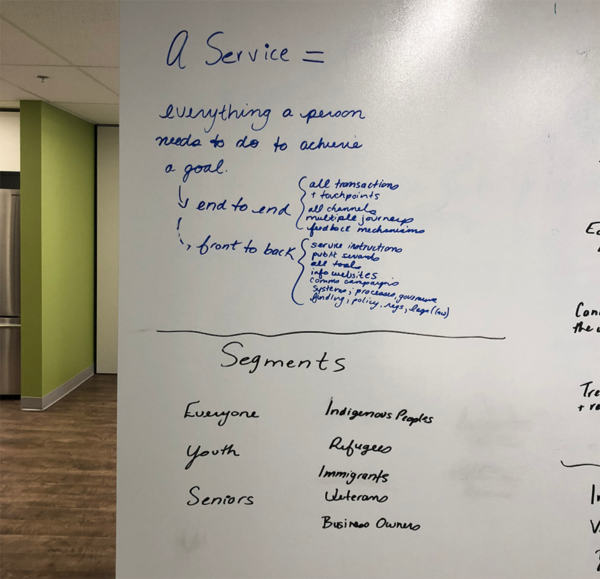 A Service =
everything a person
needs to do to achieve
a goal.
end to end
all transactions
+ touchpoints
all channels
multiple journeys
feedback mechanisms
front to back
service instructions
public servants
all tools
info websites
comms campaigns
systems, processes, governance
funding, policy, regs, lega (law)
Segments
Everyone
Youth
Seniors
Indigenous Peoples
Refugees
Immigrants
Veterans
Business Owners
the